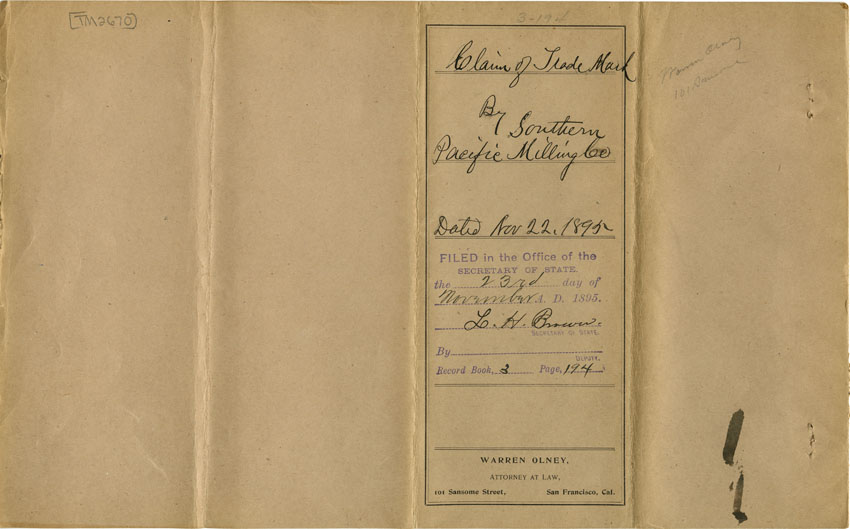 [TM2670]
3-194
Claim of Trade Mark
By Southern
Pacific Milling Co
Dated Nov 22, 1895
FILED in the Office of the
SECRETARY OF STATE.
the 23rd day of
November A. D. 1895.
L. H. Brown.
SECRETARY OF STATE.
By
DEPUTY.
Record Book, 3 Page, 194
WARREN OLNEY,
ATTORNEY AT LAW,
101 Sansome Street, San Francisco, Cal.
Warren Olney
101 Sansome